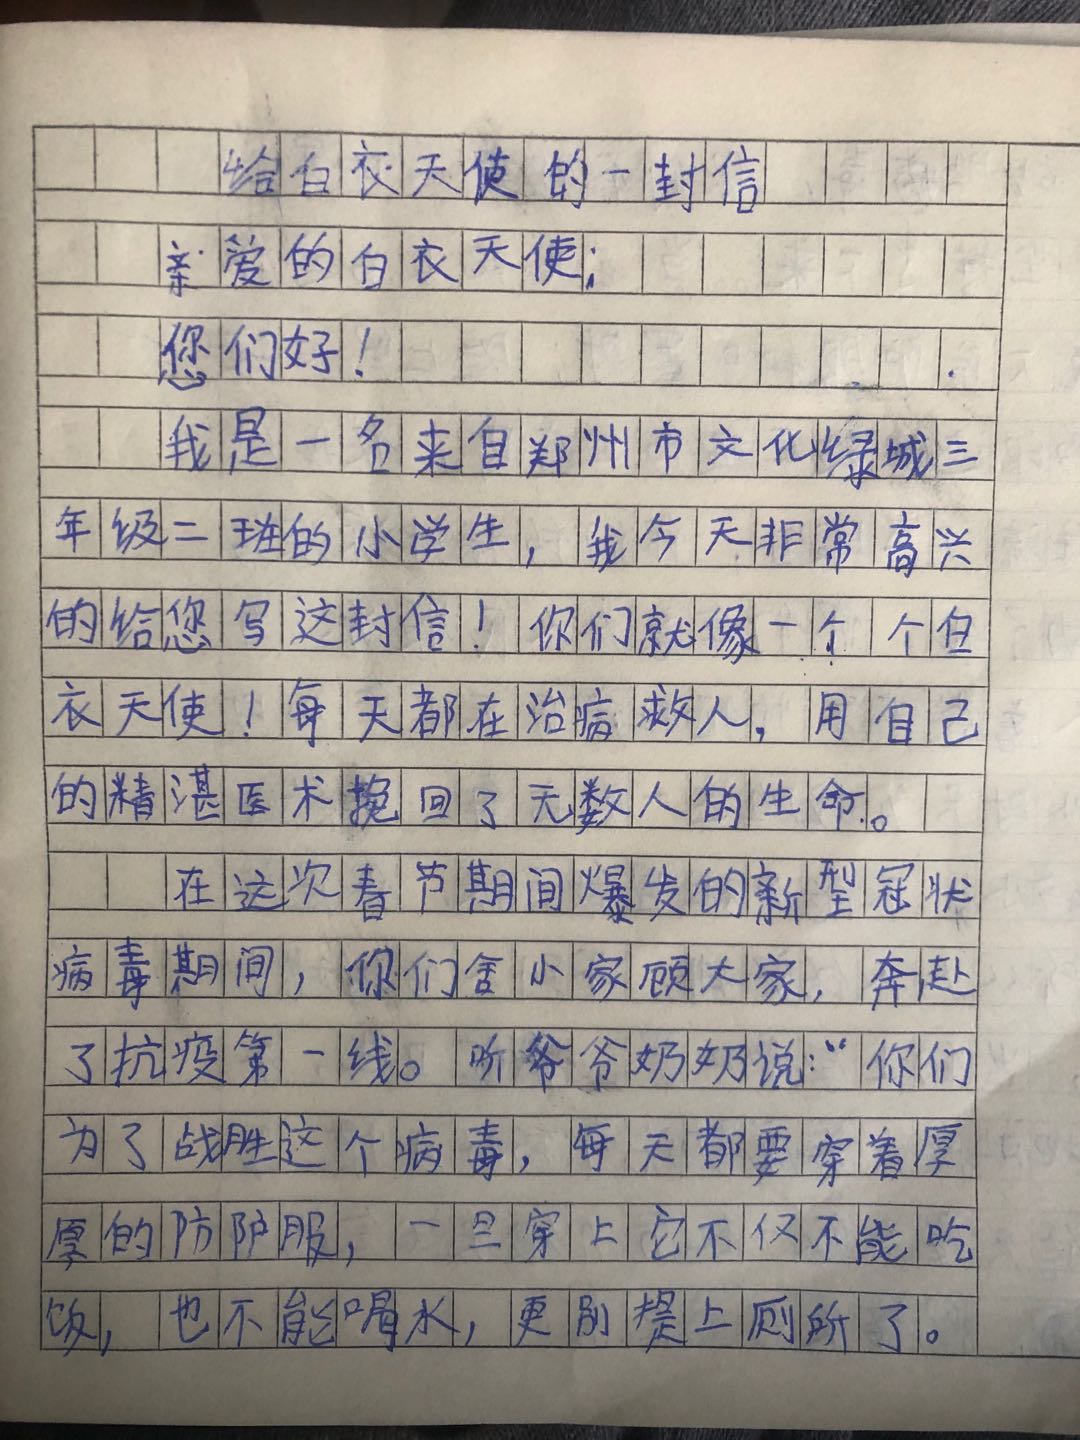 给白衣天使的一封信
亲爱的白衣天使;
您们好!
我是一名来自郑州市文化绿城三
年级二班的小学生,我今天非常高兴
的给您写这封信!你们就像一个个白
衣天使!每天都在治病救人,用自己
的精湛医术挽回了无数人的生命。
在这次春节期间爆发的新型冠状
病毒期间,你们舍小家顾大家,奔赴
了抗疫第一线。听爷爷奶奶说:“你们
为了战胜这个病毒,每天都要穿着厚
厚的防护服,一旦穿上它不仅不能吃
饭,也不能喝水,更别提上厕所了。